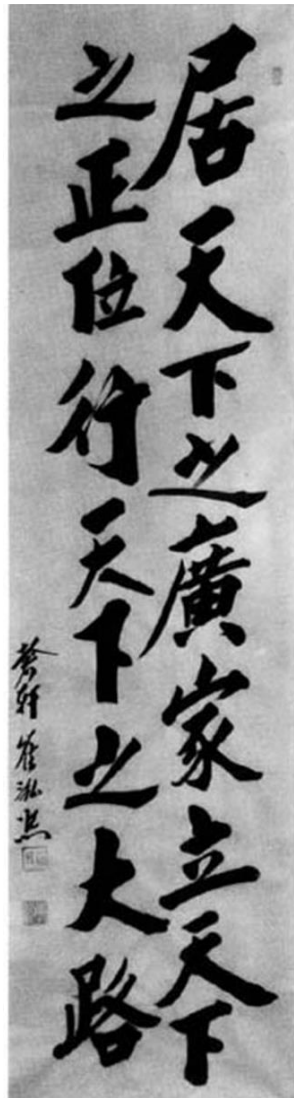 居天下之廣家立天下
之正位行天下之大路
蒼軒 崔泓熙